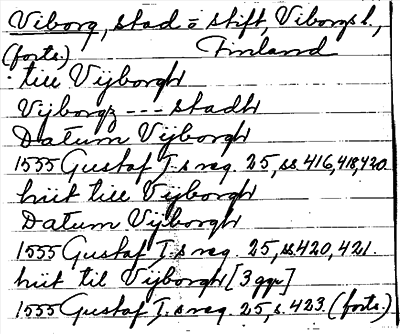 Viborg, stad = stift, Viborgs l.,
(forts.) Finland
till Vijborgh
Vijborgz --- stadh
Datum Vijborgh
1555 Gustaf I:s reg. 25, ss. 416, 418, 420.
hiit till Vijborgh
Datum Vijborgh
1555 Gustaf I:s reg. 25, ss. 420, 421.
hiit til Vijborgh [3 ggr]
1555 Gustaf I:s reg. 25, s. 423. (forts.)